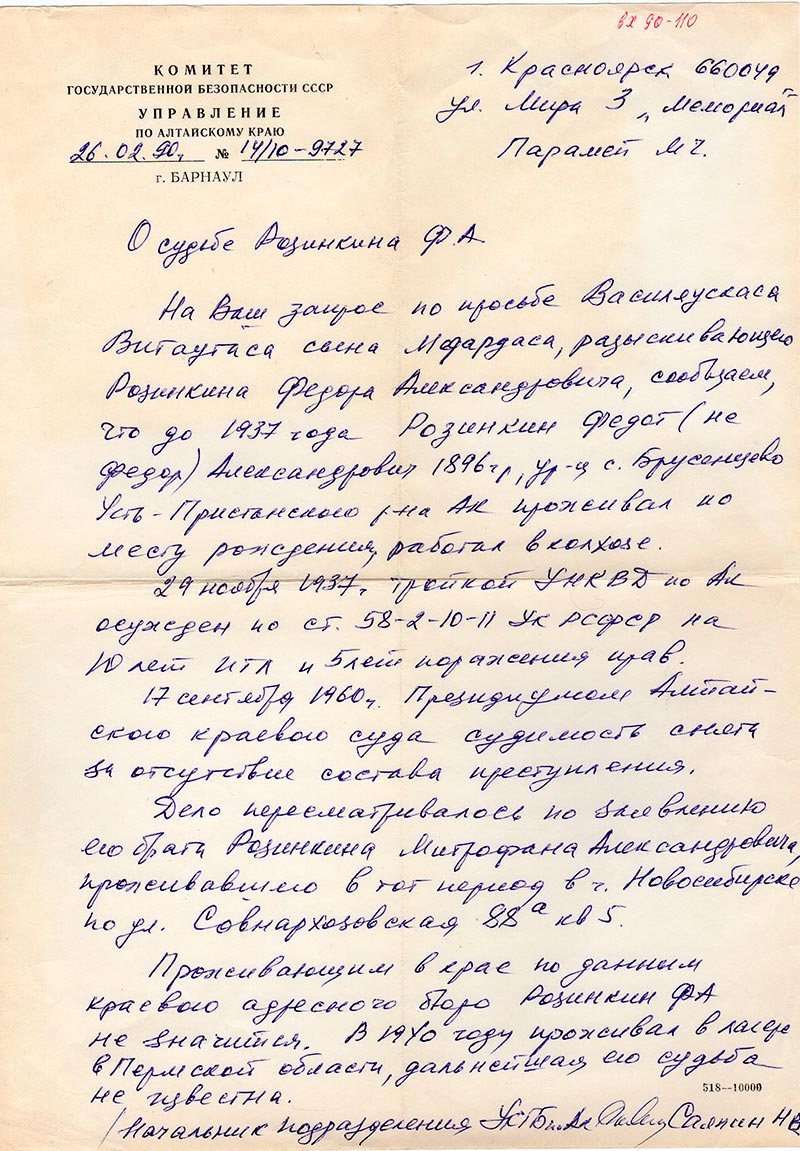 вх 90-110
КОМИТЕТ
ГОСУДАРСТВЕННОЙ БЕЗОПАСНОСТИ СССР
УПРАВЛЕНИЕ
ПО АЛТАЙСКОМУ КРАЮ
26.02.90г. № 14/10-9727
г. БАРНАУЛ
г. Красноярск 660049
ул. Мира 3 „Мемориал"
О судьбе Розинкина Ф.А.
На Ваш запрос по просьбе Василяускаса
Витаутаса сына разыскивающего
Розинкина Федора Александровича, сообщаем,
что до 1937 года Розинкин Федот (не
Федор) Александрович 1896 г.р., ур-ц с. Брусенцево
Усть-Пристанского р-на АК проживал по
месту рождения, работал в колхозе.
29 ноября 1937г. тройкой УНКВД по Ак
осужден по ст. 58-2-10-11 Ук РСФСР на
10 лет итл и 5 лет поражения прав.
17 сентября 1960г. Президиумом Алтай-
ского краевого суда судимость снята
за отсутствие состава преступления.
Дело пересматривалось по заявлению
его брата Розинкина Митрофана Александровича,
проживавшего в тот период в г. Новосибирске
по ул. Совнархозовская 88а кв 5.
Проживающим в крае по данным
краевого адресного бюро Розинкин ФА
не значится. В 1940 году проживал в лагере
в Пермской области, дальнейшая его судьба
не известна.
518—10000
Начальник подразделения УКГБ по Ак Саяпин НВ